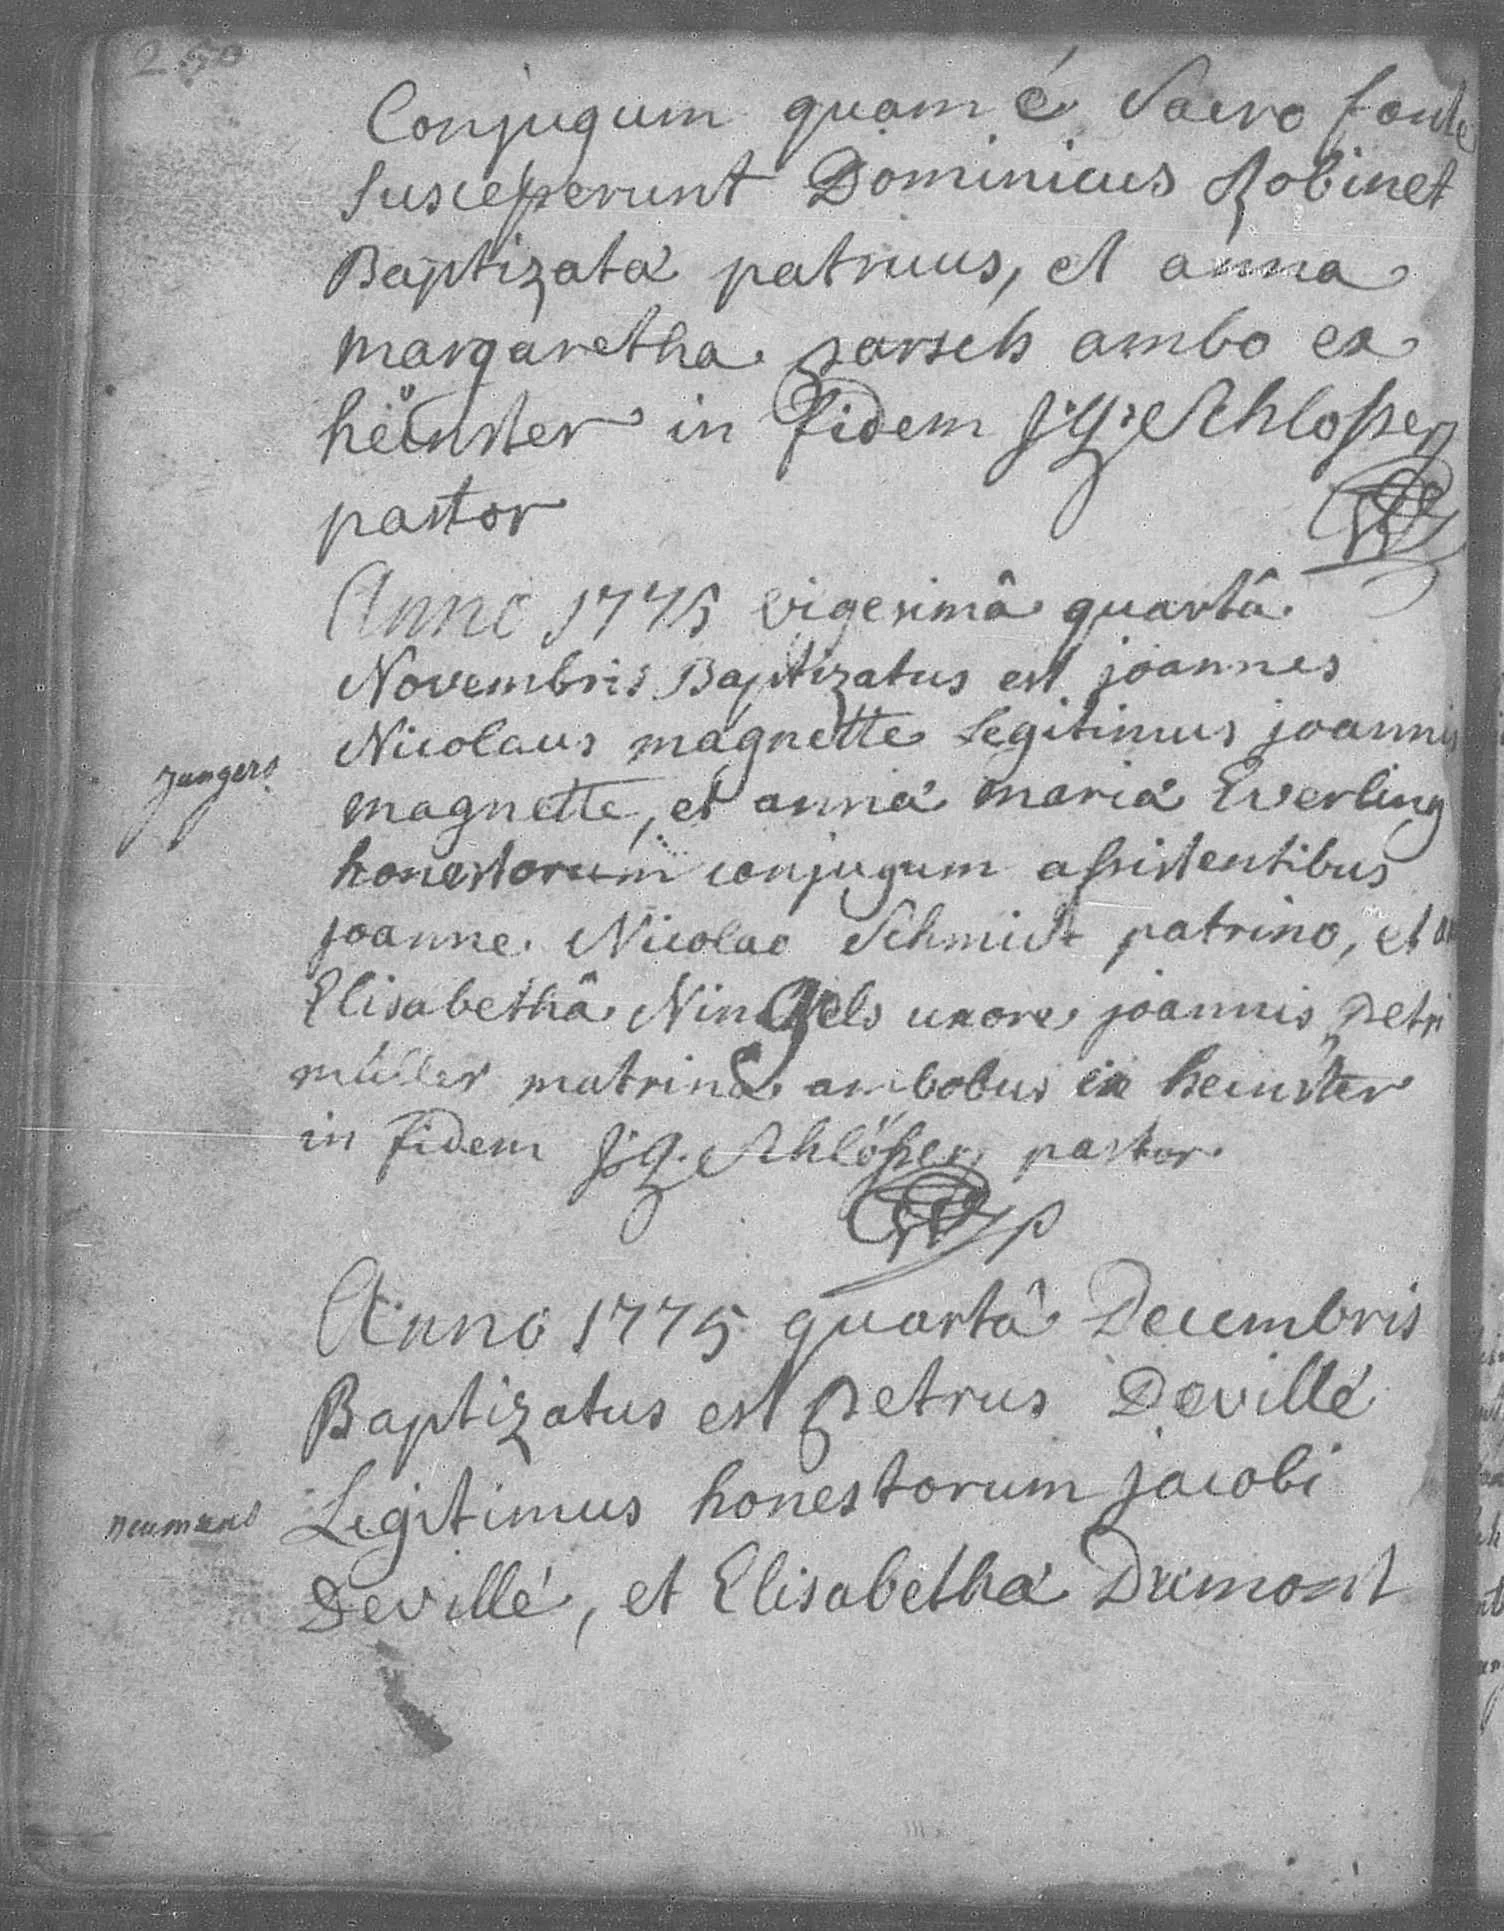 250
Conjugum quam é Sacro fonte
susceperunt Dominicus Robinet
Baptizatá patruus, et anna
margaretha parsch ambo ex
heinster in fidem J:G: Schlosser
pastor
Anno 1775 vigesimâ quartâ
Novembris Baptizatus est joannes
Nicolaus magnette legitimus joannis
Jungers
magnette, et anná mariá Everling
honestorum conjugum assistentibus
joanne Nicolao Schmidt patrino, et
Elisabethâ uxore joannis petri
müller matrinâ ambobus ex heinster
in fidem J:G: Schlösser pastor
Anno 1775 quartâ Decembris
Baptizatus est petrus Devillé
Legitimus honestorum jacobi
Neumans
Devillé, et Elisabethá Dumont